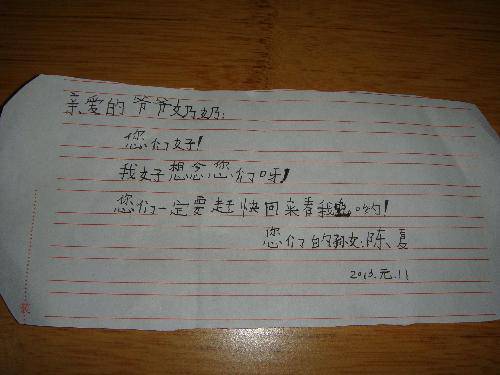 亲爱的爷爷奶奶:
您们好!
我好想念您们呀!
您们一定要赶快回来看我哟!
您们的孙女:陈夏
2013.元.11